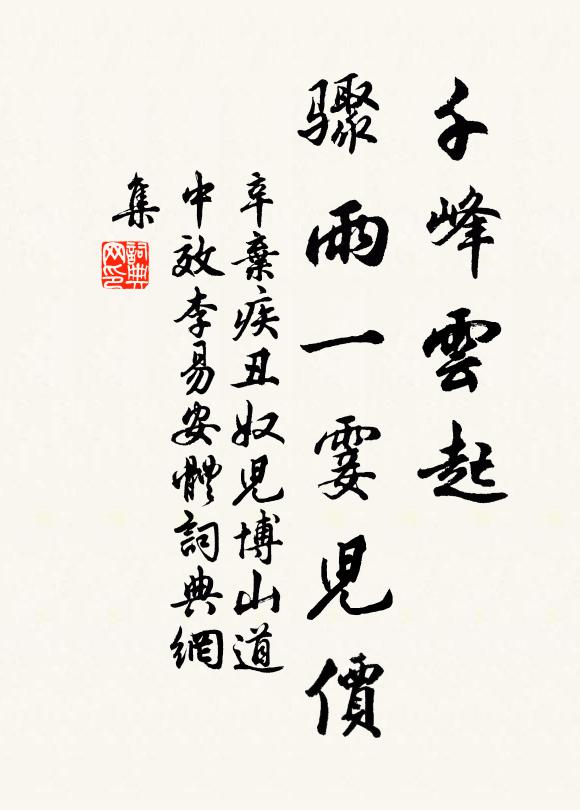 千峰雲起
驟雨一霎兒價
辛棄疾丑奴兒博山道
中效李易安體詞典網
集
詞典
网印